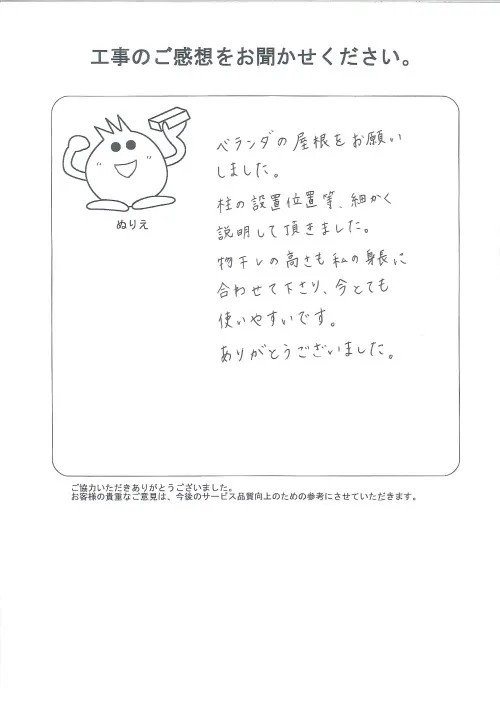 工事のご感想をお聞かせください。
ベランダの屋根をお願い
しました。
柱の設置位置等、細かく
説明して頂きました。
物干しの高さも私の身長に
合わせて下さり、今とても
使いやすいです。
ありがとうございました。
ぬりえ
ご協力いただきありがとうございました。
お客様の貴重なご意見は、今後のサービス品質向上のための参考にさせていただきます。